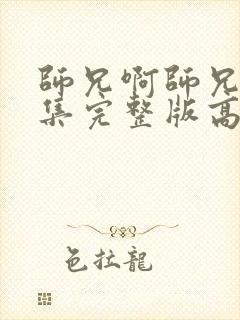 師兄啊師兄
集完整版高
色拉龍